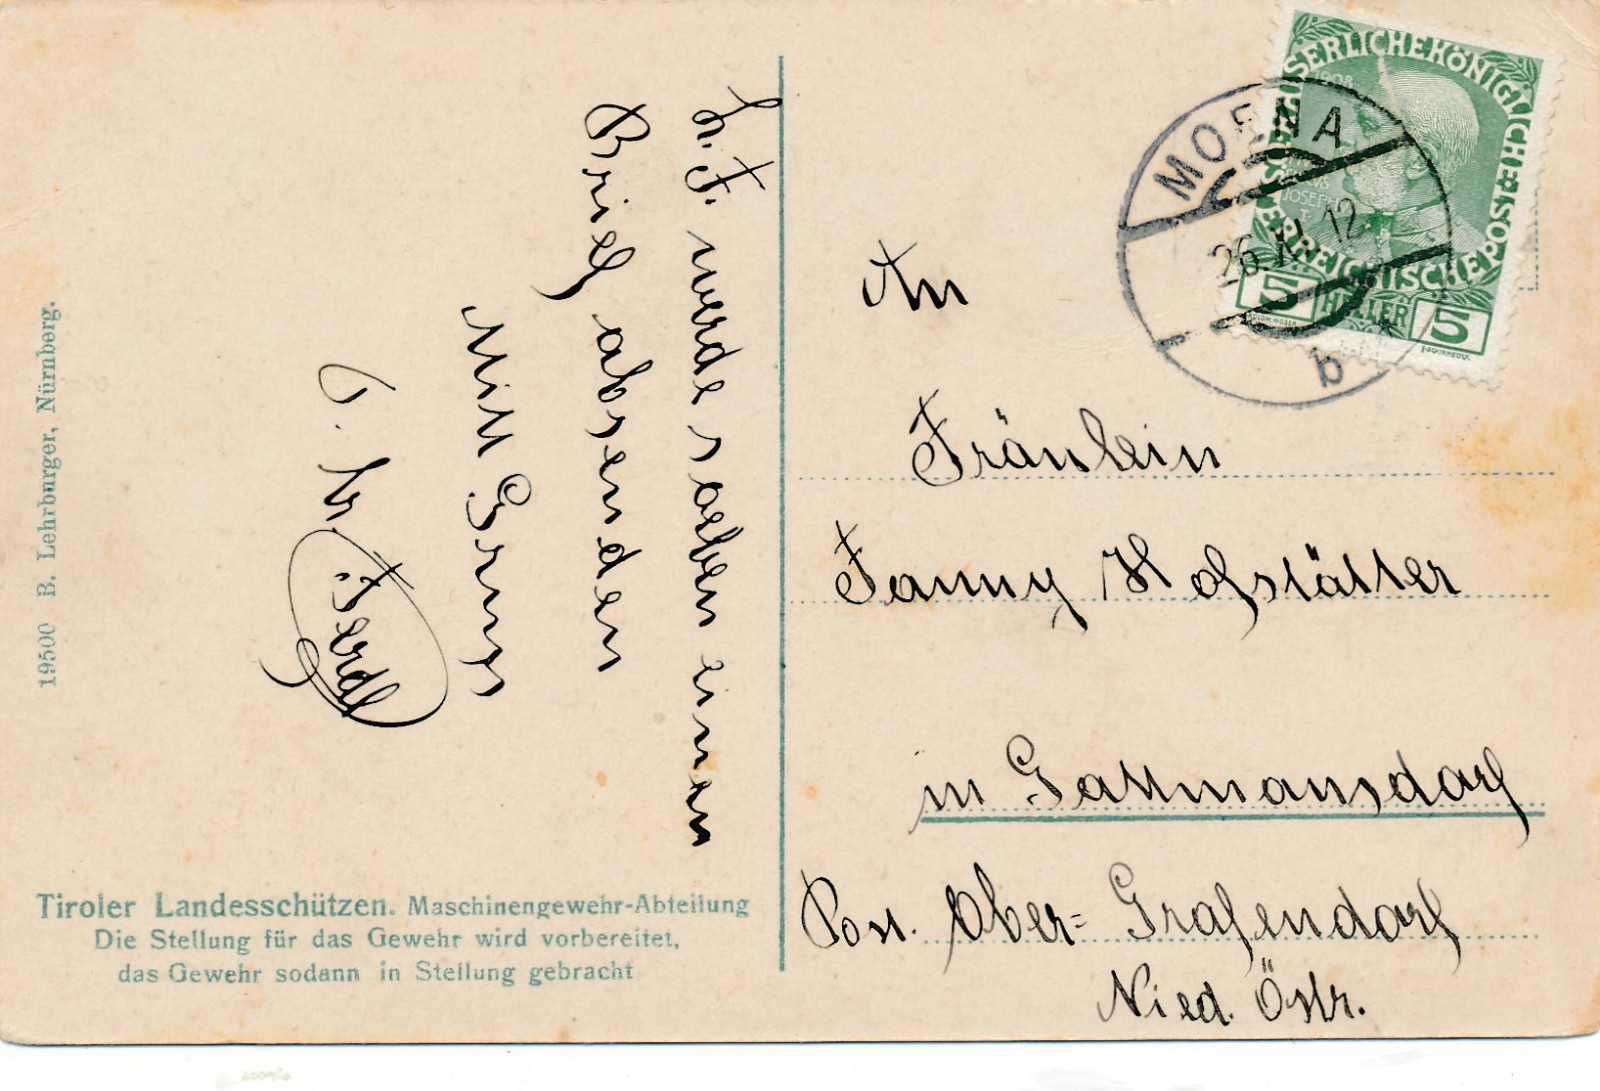 L. F. werde soeben einen
Brief absenden
Mitt Gruss
Ferdl
19500 B. Lehrburger, Nürnberg.
Tiroler Landesschützen. Maschinengewehr-Abteilung
Die Stellung für das Gewehr wird vorbereitet,
das Gewehr sodann in Stellung gebracht
KAISERLICHE KÖNIGLICHE ÖSTERREICHISCHE POST
1908
JOSEPH
I
5 HELLER 5
KOLOM.MOSER
F.SCHIRNBÖCK
MOENA
26 XI 12
b
An
Fräulein
Fanny Hofstätter
in Gattmansdorf
Post. Ober-Grafendorf
Nied. Östr.